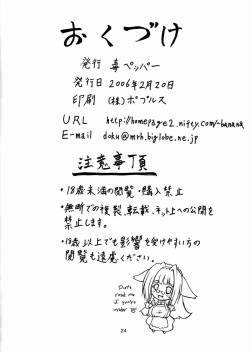 おくづけ
発行 毒ペッパー
発行日 2006年2月20日
印刷 (株)ポプルス
URL http://homepage2.nifty.com/~banana
E-mail doku@mrh.biglobe.ne.jp
注意事項
・18歳未満の閲覧・購入禁止
・無断での複製、転載、ネット上への公開を
禁止します。
・18歳以上でも影響を受けやすい方の
閲覧も遠慮ください。
Don't
read me
if you're
under 18
24